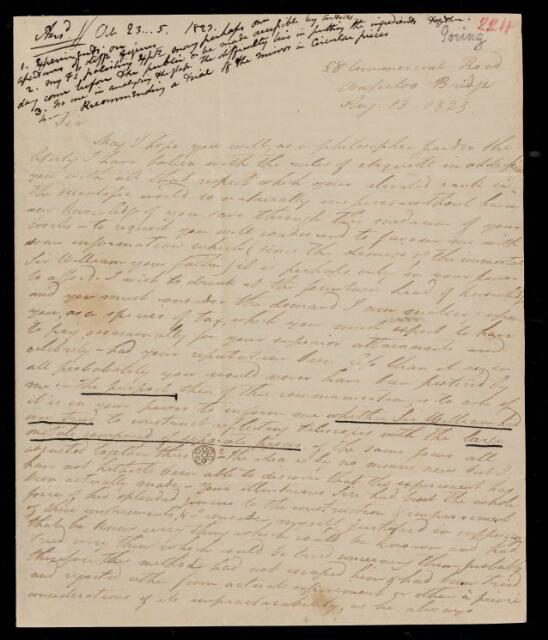 Ansd Oct 23 . . . 5. 1823.
1. Experiments on
apertures of diff. figures
2. my Fs polishing appts may perhaps one
day come before the public & be made accessible by turners
3. No use in analysing the speca. The difficulty lies in putting the ingredients together
4. Recommending a trial of the mirror in Circular pieces
224
Goring
58 Commercial Road
Waterloo Bridge
Aug. 13. 1823
Sir
May I hope you will, as a philosopher, pardon the
liberty I have taken with the rules of etiquette in addressing
you with all that respect which your elevated rank in
the scientific world so naturally inspires without having
any knowledge of you save through the medium of your
works – to request you will condescend to favour me with
some information which (since the demise of the immortal
Sir William your father) it is perhaps only in your power
to afford. I wish to drink at the fountain head of knowledge
and you must consider the demand I am making upon
you, as a species of tax, which you must expect to have
to pay occasionally for your superior attainments and
celebrity – had your reputation been less than it now is
all probability you would never have been pestered by
me – The purport then of this communication is to ask if
it is in your power to inform me whether Sir William had
ever tried to construct reflecting telescopes with the large
metals composed of separate pieces of the same focus all
adjusted together thus the idea is by no means new but I
have not hitherto been able to discover that the experiment has
been actually made – Your illustrious Sire had bent the whole
force of his splendid genius to the construction & improvement
of these instruments, & I consider myself justified in supposing
that he knew every thing which could be known and had
tried every thing which could be tried concerning them probably
therefore this method had not escaped him & had been tried
and rejected either from actual experiment or other a priori
considerations of its impracticability, as he always